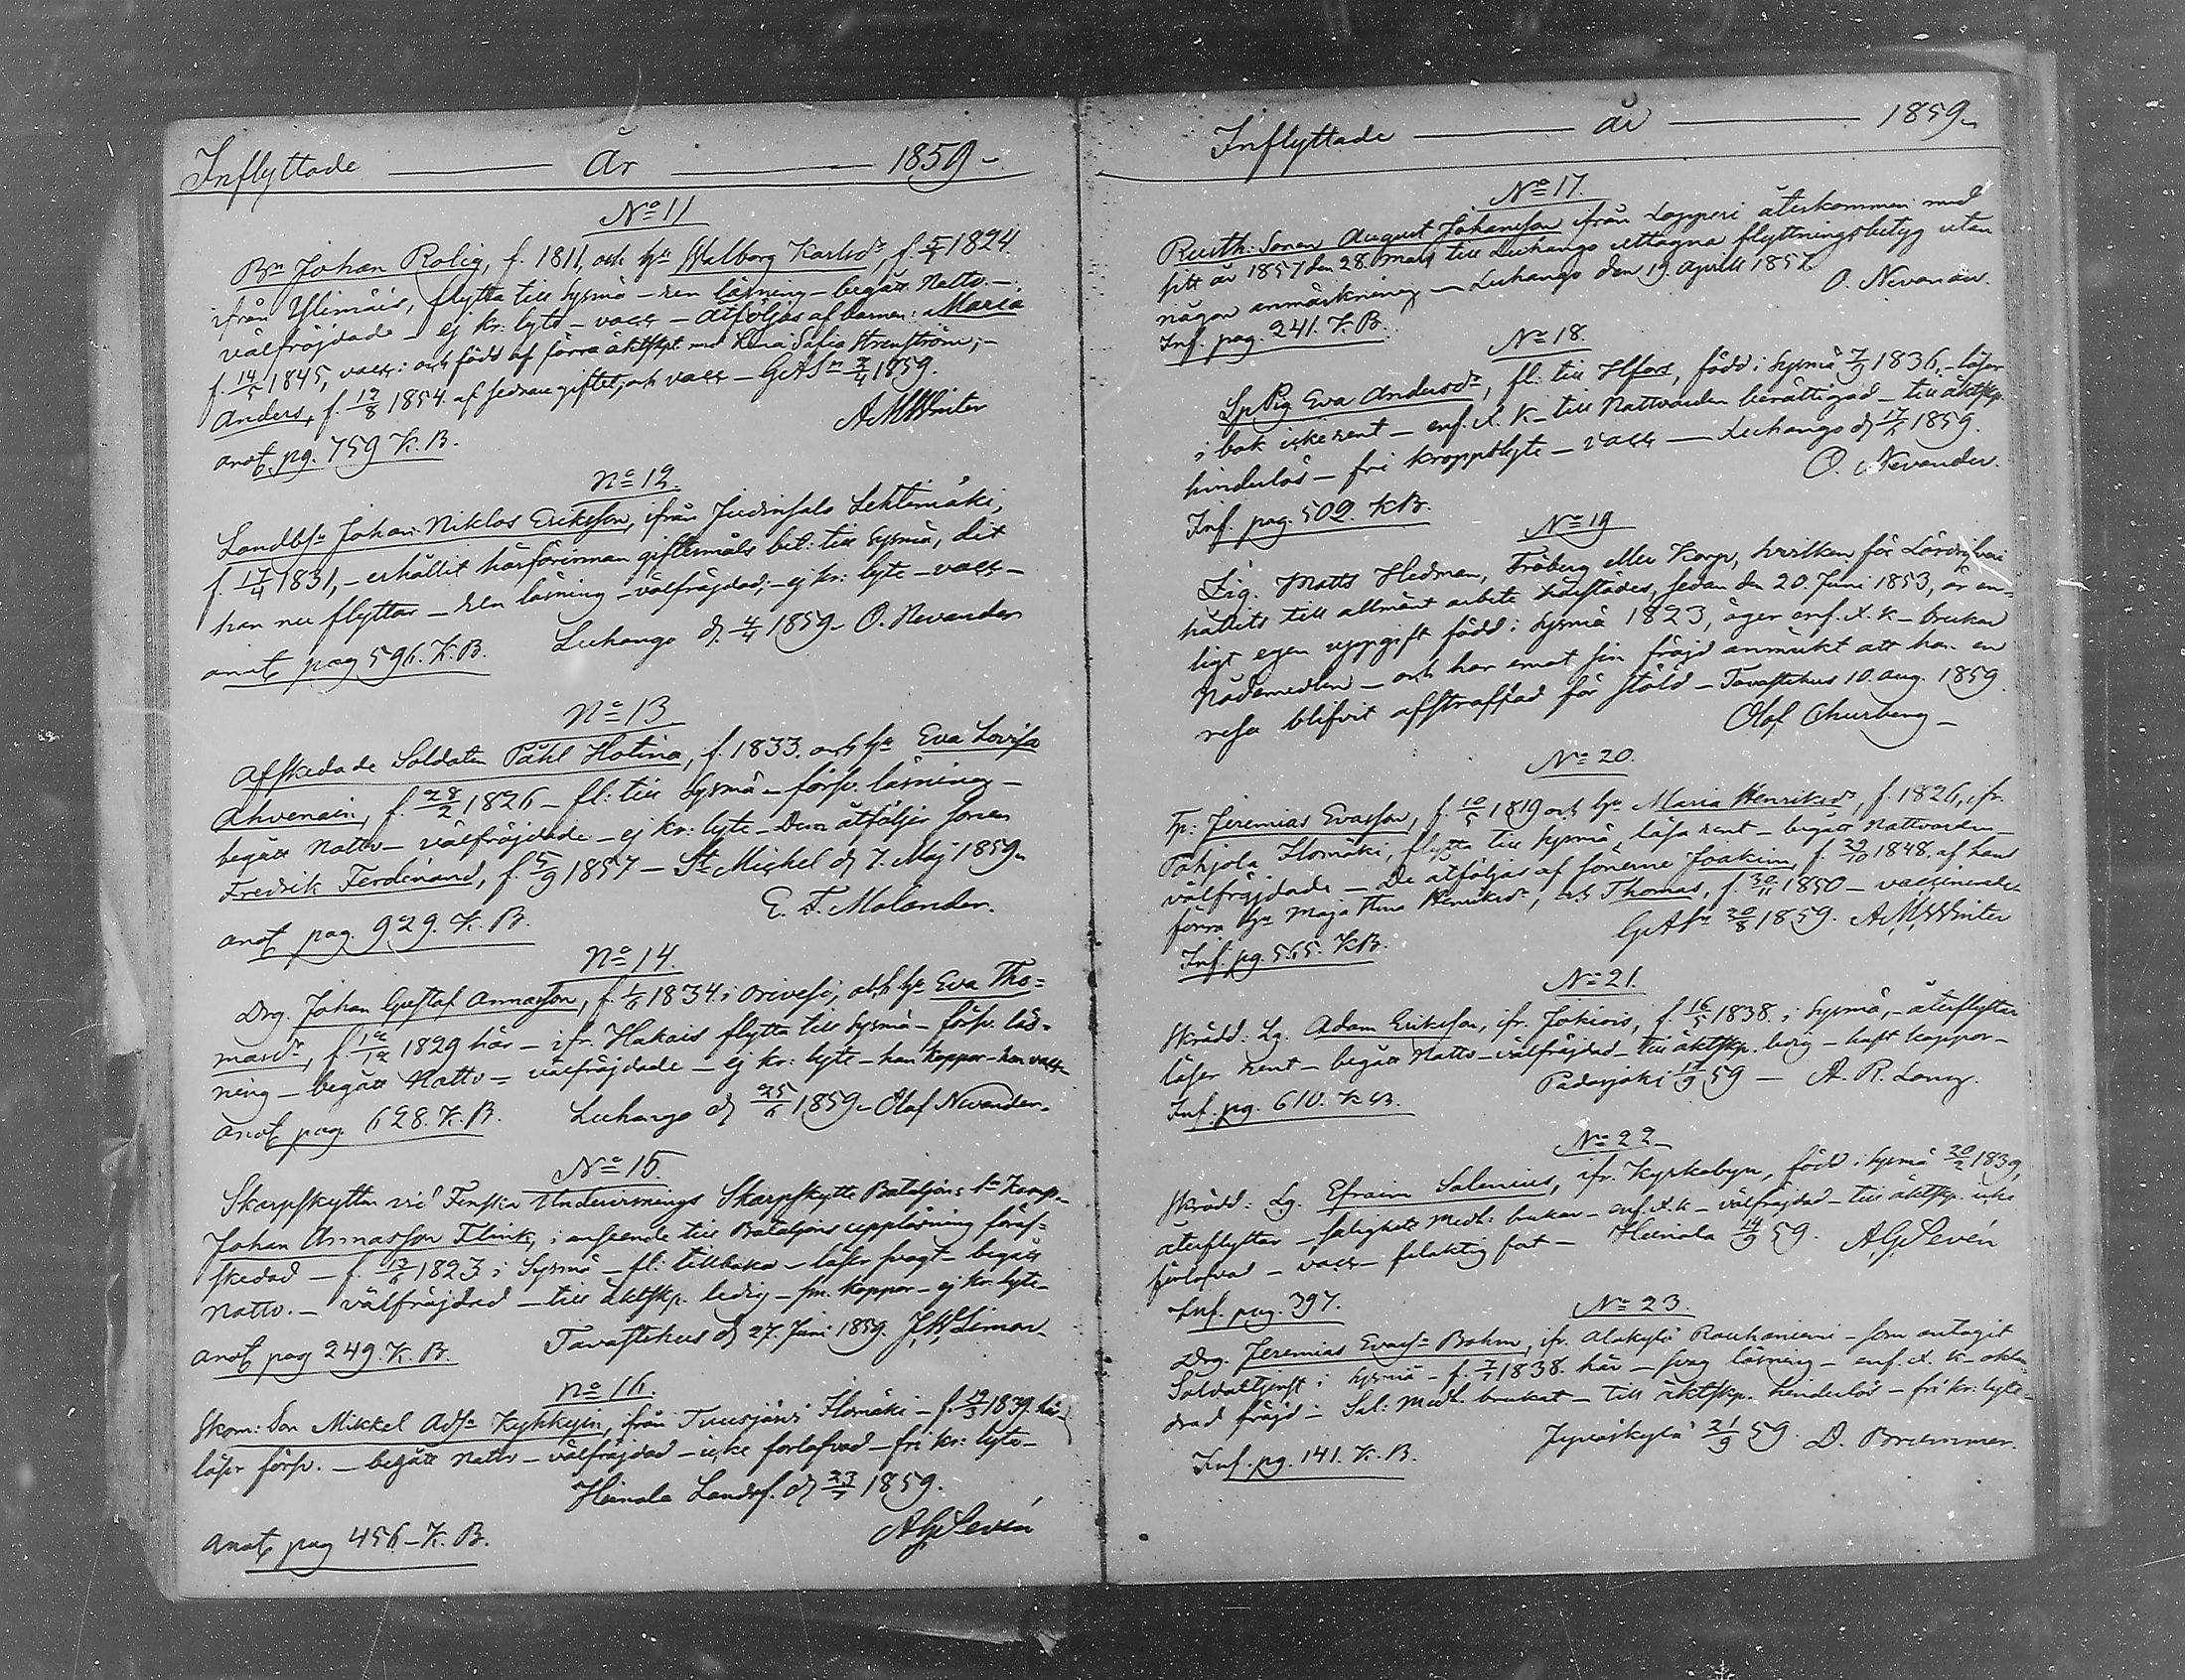 Inflyttade — År — 1859 –
No 11
Bn Johan Rolig, f. 1811, och hu Walborg Karlsdr, f. 5/7 1824.
ifrån Ylimäis, flytta till Sysmä – ren läsning – begått Nattv. –
välfräjdade – ej kr. lyte – vacc – Åtföljas af barnen: Maria
f. 14/5 1845, vacc: och född af förra äktskpt med Lena Sofia Strenström; –
Anders, f. 19/8 1854. af sednare giftet, och vacc – GASm 3/4 1859.
AMWinter
anot. pg. 759 K. B.
No 12.
Landbsn Johan Niklas Eriksson, ifrån Judinsalo Lehtimäki,
f. 17/4 1831, – erhållit härförinnan giftermåls bet: till Sysmä, dit
han nu flyttar – ren läsning – välfräjdad; – ej kr: lyte – vacc –
anot. pag 596. K. B. Luhango d. 4/4 1859 – O. Nevander
No 13.
Afskedade Soldaten Påhl Hotina, f. 1833. och hu Eva Lovisa
Ahvenain, f. 28/2 1826 – fl: till Sysmä – försv. läsning –
begått Nattv – välfräjdade – ej kr: lyte – Dem åtföljer sonen
Fredrik Ferdinand, f. 5/9 1857 – St Michel d. 7. Maj 1859.
E. F. Molander.
anot. pag. 929. K. B.
No 14.
Drg. Johan Gustaf Annasson, f. 1/6 1834. i Orivesi, och hu Eva Tho=
masdr, f. 12/12 1829 här – ifr. Hakais flytta till Sysmä – försv. läs=
ning – begått Nattv – välfräjdade – ej kr: lyte – han koppor – hon vacc –
anot. pag 628. K. B. Luhango d. 25/6 1859 – Olaf Nevander.
No 15.
Skarpskytten vid Finska Undervisnings Skarpskytte Bataljons 1a Komp.
Johan Annasson Flink, i anseende till Bataljons upplösning föraf=
skedad – f. 12/6 1823 i Sysmä – fl: tillbaka – läser svagt – begått
Nattv. – välfräjdad – till äktskp. ledig – sm. koppor – ej kr: lyte –
anot. pag 249. K. B. Tavastehus d. 27. Juni 1859. J. W. Liman.
No 16.
Skom: Son Mikkel Adsn Kykkyin, ifrån Tuusjärvi Ilomäki – f. 19/3 1839. här –
läser försv. – begått Nattv – välfräjdad – icke förlofvad – fri kr: lyte –
Heinola Landsf. d. 23/7 1859.
AGLevén
anot. pag 456 – K. B.
Inflyttade — år — 1859 –
No 17.
Rusth: Sonen August Johansson ifrån Lapperi återkommen med
sitt år 1857 den 28. Mars till Luhango uttagna flyttningsbetyg utan
någon anmärkning – Luhango den 19. Aprill 1857.
O. Nevander.
Inf. pag. 241. K. B.
No 18.
Sp Pig Eva Andersdr, fl: till Hfors, född i Sysmä 7/9 1836, – läser
i bok icke rent – enf. X. K – till Nattvarden berättigad – till äktskp.
hinderlös – fri kroppslyte – vacc – Luhango d. 17/5 1859.
O. Nevander.
Inf. pag. 502. KB.
No 19
Lsg. Matts Hedman, Fröberg eller Korp, hvilken för Lösdrifveri
hållits till allmänt arbete härstädes, sedan den 20. Juni 1853, är en=
ligt egen uppgift född i Sysmä 1823, äger enf. X. K – brukar
Nådemedlen – och har emot sin fräjd anmärkt att han en
resa blifvit afstraffad för stöld – Tavastehus 10. Aug. 1859.
Olof Churberg –
No 20.
Tp: Jeremias Evasson, f. 10/5 1819 och hu Maria Henriksdr, f. 1826, ifr.
Pohjola Ilomäki, flytta till Sysmä, läsa rent – begått Nattvarden –
välfräjdade – De åtföljas af sönerne Joakim, f. 29/10 1848. af hans
förra hu Maja Stina Henriksdr, och Thomas, f. 30/11 1850 – vaccinerade
GASm 30/8 1859. AMWinter
Inf. pg. 565. KB.
No 21.
Skrädd: Lg. Adam Eriksson, ifr. Jokiois, f. 16/5 1838. i Sysmä, – återflyttar
läser rent – begått Nattv – välfräjdad – till äktskp. ledig – haft koppor –
Padasjoki 17/9 59 – A. R. Lang.
Inf. pg. 610. K B.
No 22 –
Skrädd: Lg. Efraim Salenius, ifr. Kyrkobyn, född i Sysmä 20/2 1839,
återflyttar – salighets medl: brukar – enf. X. K – välfräjdad – till äktskp. icke
förlofvad – vacc – felaktig fot – Heinola 14/9 59. AGLevén
Inf. pag. 397.
No 23.
Drg. Jeremias Evassn Bohm, ifr. Alakylä Rauhaniemi – som antagit
Soldattjenst i Sysmä – f. 7/7 1838. här – svag läsning – enf. X. K – oklan=
drad fräjd – Sal: Medl. brukat – till äktskp. hinderlös – fri kr: lyte –
Jyväskylä 21/9 59. D. Brummer.
Inf. pg. 141. K. B.